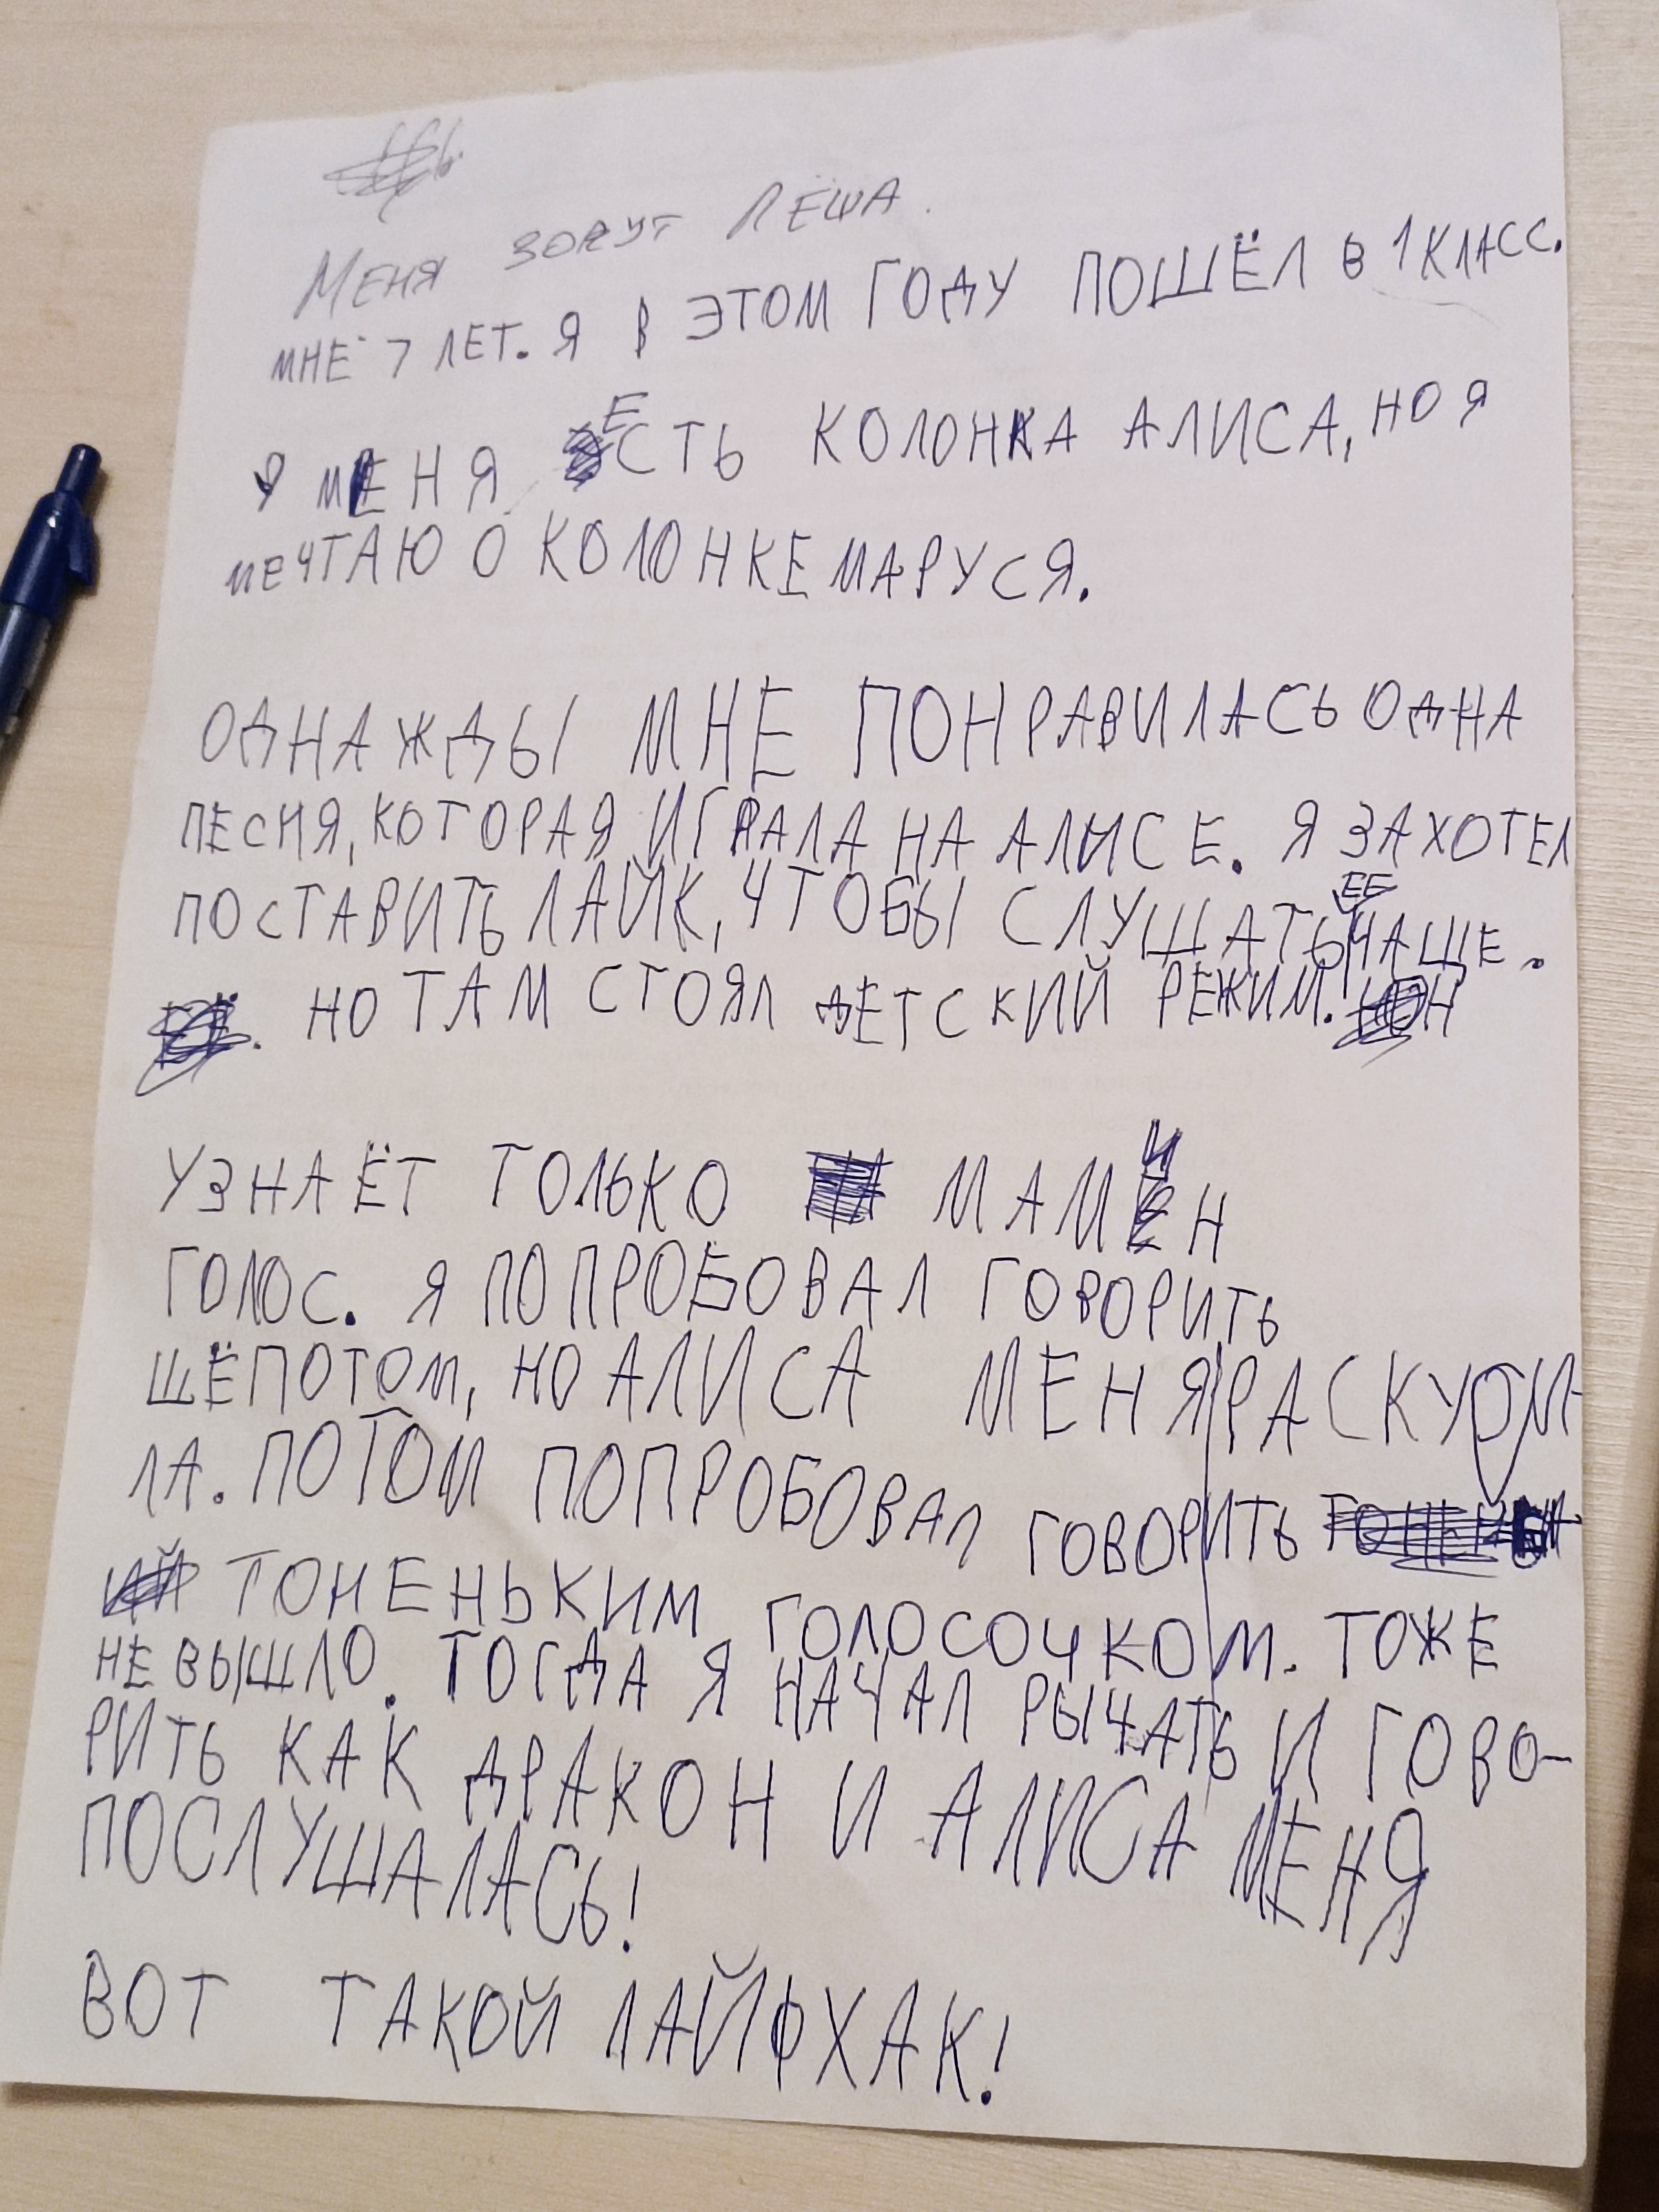 Меня зовут Лёша.
МНЕ 7 ЛЕТ. Я В ЭТОМ ГОДУ ПОШЁЛ В 1 КЛАСС.
У МЕНЯ ЕСТЬ КОЛОНКА АЛИСА, НО Я
МЕЧТАЮ О КОЛОНКЕ МАРУСЯ.
ОДНАЖДЫ МНЕ ПОНРАВИЛАСЬ ОДНА
ПЕСНЯ, КОТОРАЯ ИГРАЛА НА АЛИСЕ. Я ЗАХОТЕЛ
ПОСТАВИТЬ ЛАЙК, ЧТОБЫ СЛУШАТЬ ЕЕ ЧАЩЕ.
. НО ТАМ СТОЯЛ ДЕТСКИЙ РЕЖИМ. ОН
УЗНАЁТ ТОЛЬКО МАМИН
ГОЛОС. Я ПОПРОБОВАЛ ГОВОРИТЬ
ШЁПОТОМ, НО АЛИСА МЕНЯ РАСКУСИ-
ЛА. ПОТОМ ПОПРОБОВАЛ ГОВОРИТЬ
ТОНЕНЬКИМ ГОЛОСОЧКОМ. ТОЖЕ
НЕ ВЫШЛО. ТОГДА Я НАЧАЛ РЫЧАТЬ И ГОВО-
РИТЬ КАК ДРАКОН И АЛИСА МЕНЯ
ПОСЛУШАЛАСЬ!
ВОТ ТАКОЙ ЛАЙФХАК!